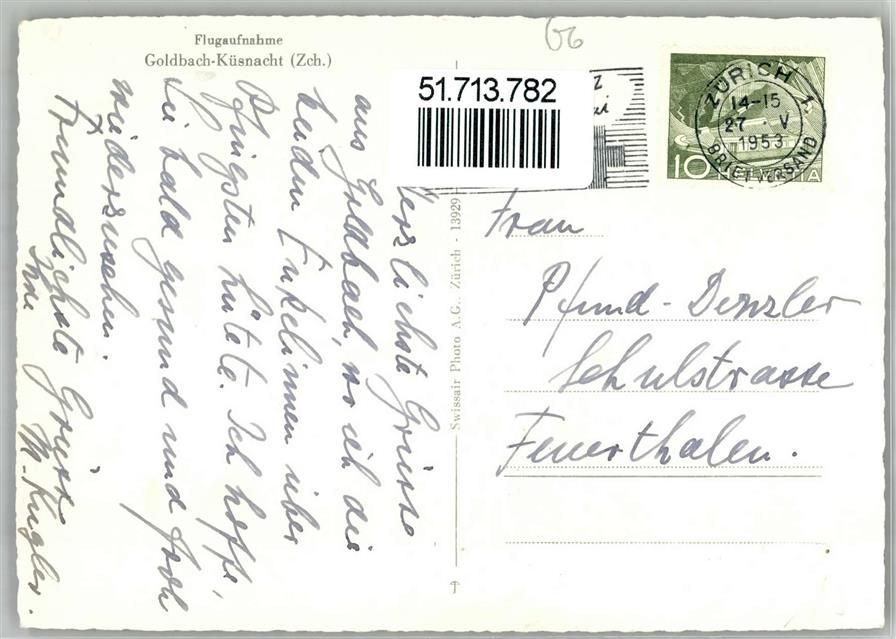 66
Flugaufnahme
Goldbach-Küsnacht (Zch.)
51.713.782
ZÜRICH 1
14-15
27 V
1953
BRIEFVERSAND
10 HELVETIA
Herzlichste Grüsse
aus Goldbach, wo ich die
beiden Enkelinnen über
Pfingsten hütete. Ich hoffe,
Sie bald gesund und froh
wiederzusehen.
Freundlichste Grüsse
Ihre M. Kugler.
Swissair Photo A.G., Zürich - 13929
Frau
Pfund-Denzler
Schulstrasse
Feuerthalen.